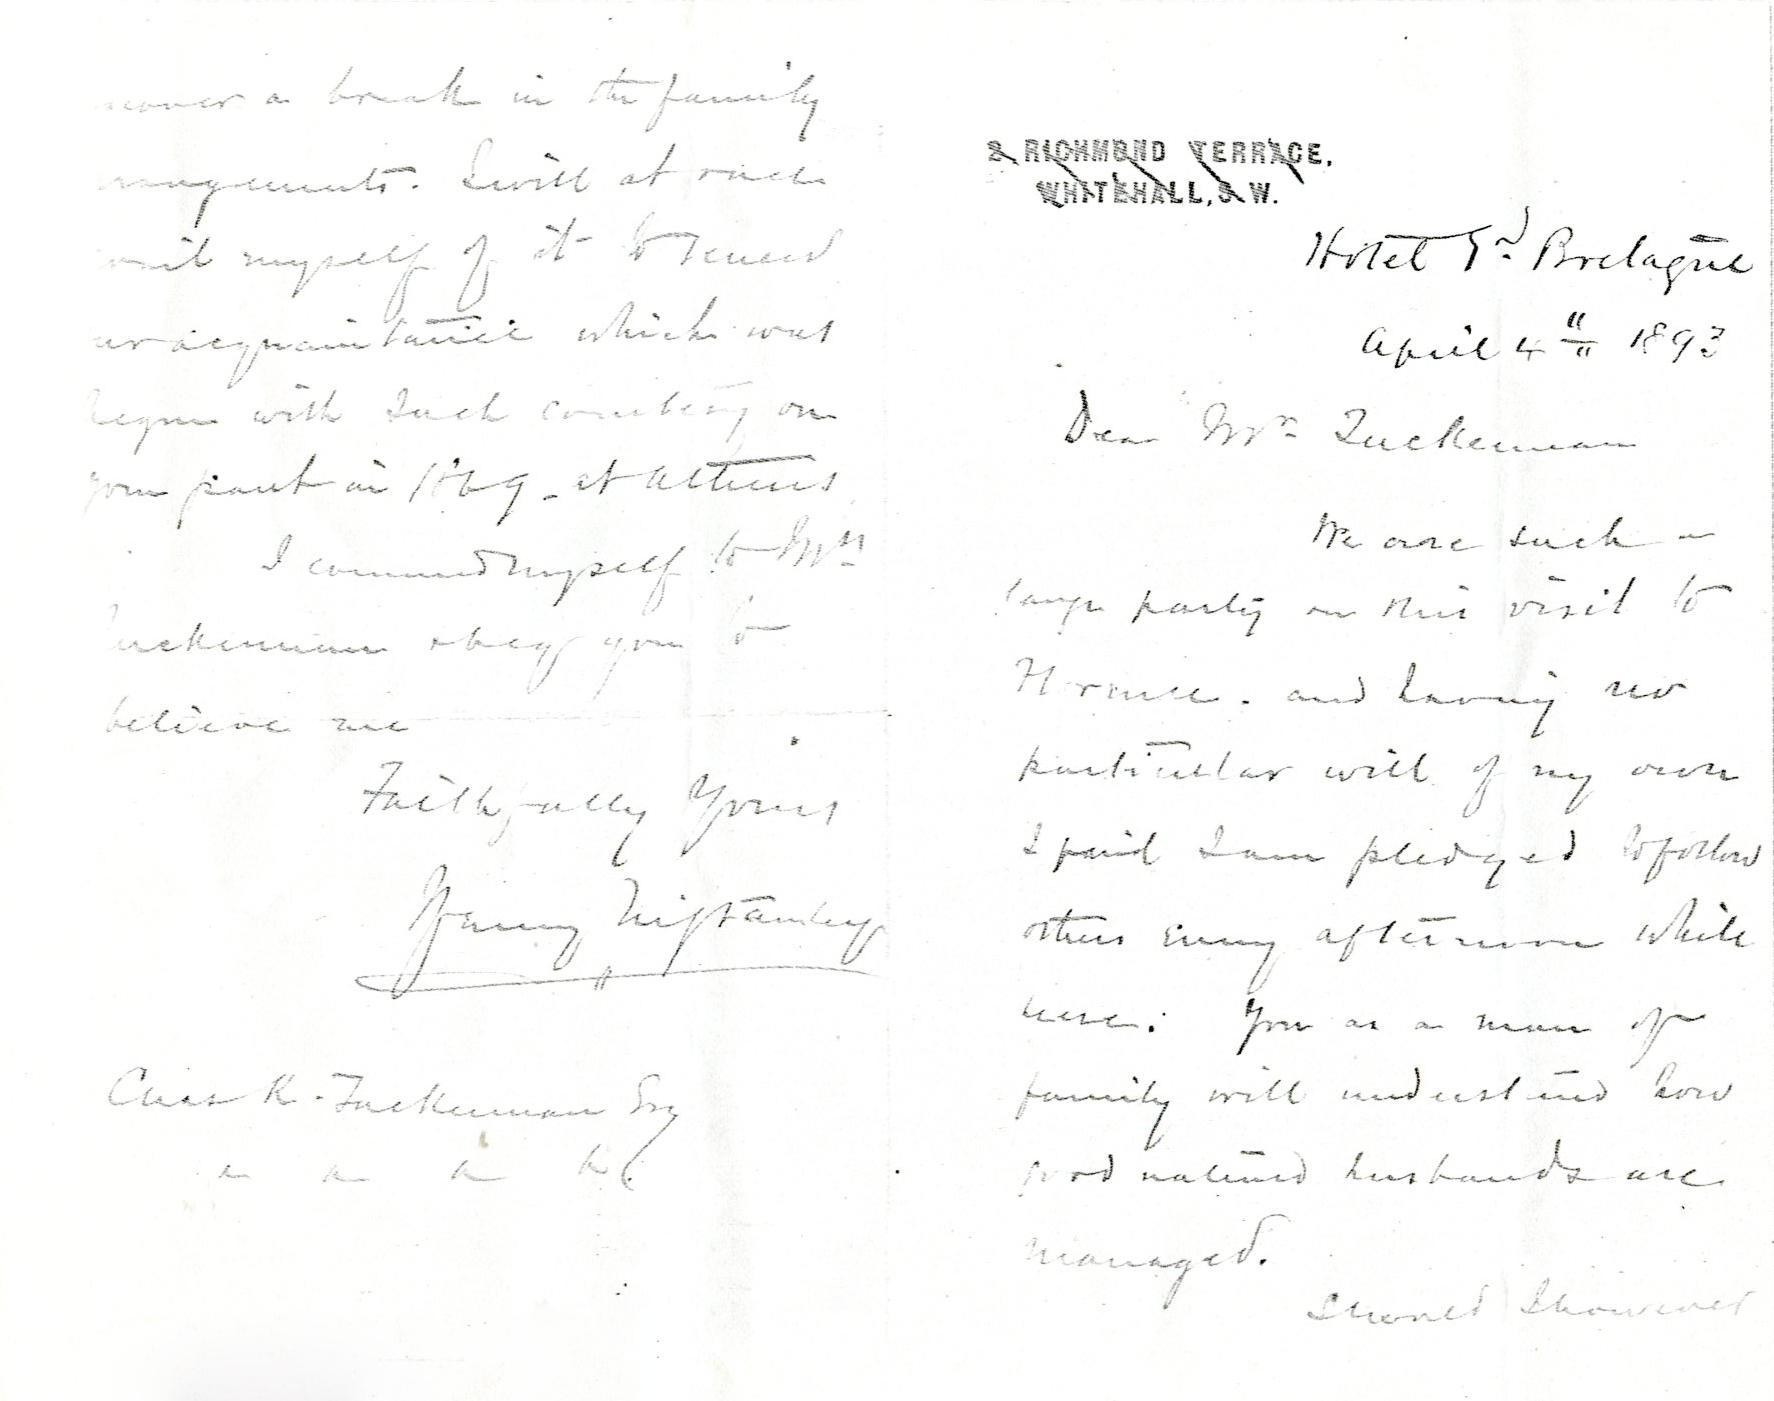 2, RICHMOND TERRACE,
WHITEHALL, S.W.
Hotel Gd Bretagne
April 4th 1893
Dear Mr Tuckerman
We are such a
large party on this visit to
Florence. and having no
particular will of my own
I find I am pledged to follow
others every afternoon while
here. You as a man of
family will understand how
good natured husbands are
managed.
Should I however
discover a break in the family
arrangements. I will at once
avail myself of it to renew
our acquaintance which was
begun with such courtesy on
your part in 1869 - at Athens
I commend myself to Mrs
Tuckerman & beg you to
believe me
Faithfully Yours
Henry M Stanley
Chas K. Tuckerman Esq
&c